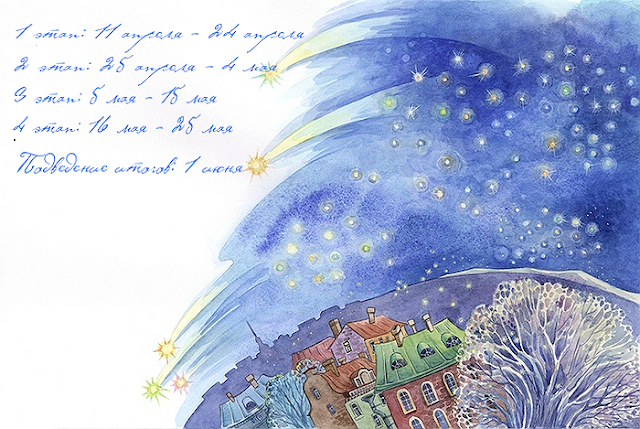 1 этап: 11 апреля - 24 апреля
2 этап: 25 апреля - 4 мая
3 этап: 5 мая - 15 мая
4 этап: 16 мая - 25 мая
Подведение итогов: 1 июня